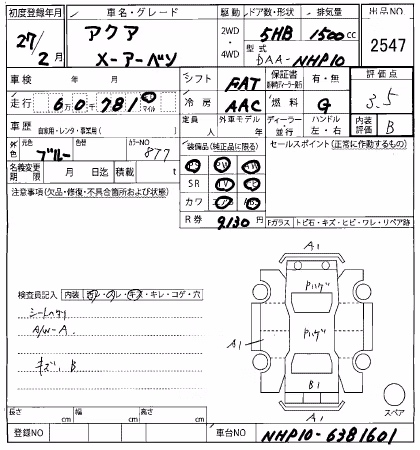 初度登録年月 車名・グレード 駆動 ドア数・形状 排気量 出品NO
27/2月 アクア 2WD・4WD 5HB 1500cc 2547
X-アーバン 型式 DAA-NHP10
車検 年 月 シフト FAT 保証書 有・無 評価点
走行 6万0千781 km マイル 冷房 AAC 燃料 G 3.5
車歴 自家用・レンタ・事業用( ) 定員 人 外車モデル 年 ディーラー 並行 ハンドル 左・右 内装評価 B
外色 元色 ブルー 色替 カラーNO 877 装備品(純正品に限る) セールスポイント(正常に作動するもの)
名義変更期限 月 日迄 積載 t PS PW
注意事項(欠品・修復・不具合箇所および状態) SR TV
カワ エアB
R券 9130円 Fガラス トビ石・キズ・ヒビ・ワレ・リペア跡
A1
検査員記入 内装 ・キレ・コゲ・穴
シートヘタリ
A/W-A
キズ、B
ハゲ
ハゲ
A1
B1
A1
スペア
長さ cm 幅 cm 高さ cm
登録NO 車台NO NHP10-6381601